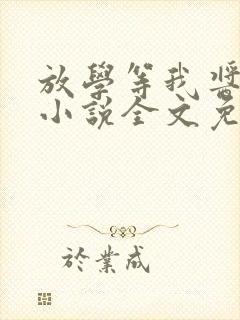 放學等我醬
小說全文免
於業成